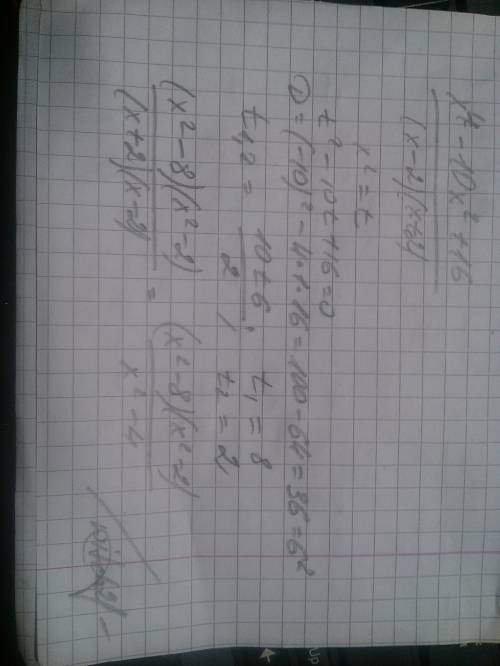 x⁴ - 10x² + 16
(x-2)(x+2)
x² = t
t² - 10t + 16 = 0
D = (-10)² - 4·1·16 = 100 - 64 = 36 = 6²
t₁,₂ = 10±6 / 2 ; t₁ = 8
t₂ = 2
(x²-8)(x²-2) / (x+2)(x-2) = (x²-8)(x²-2) / x²-4
up